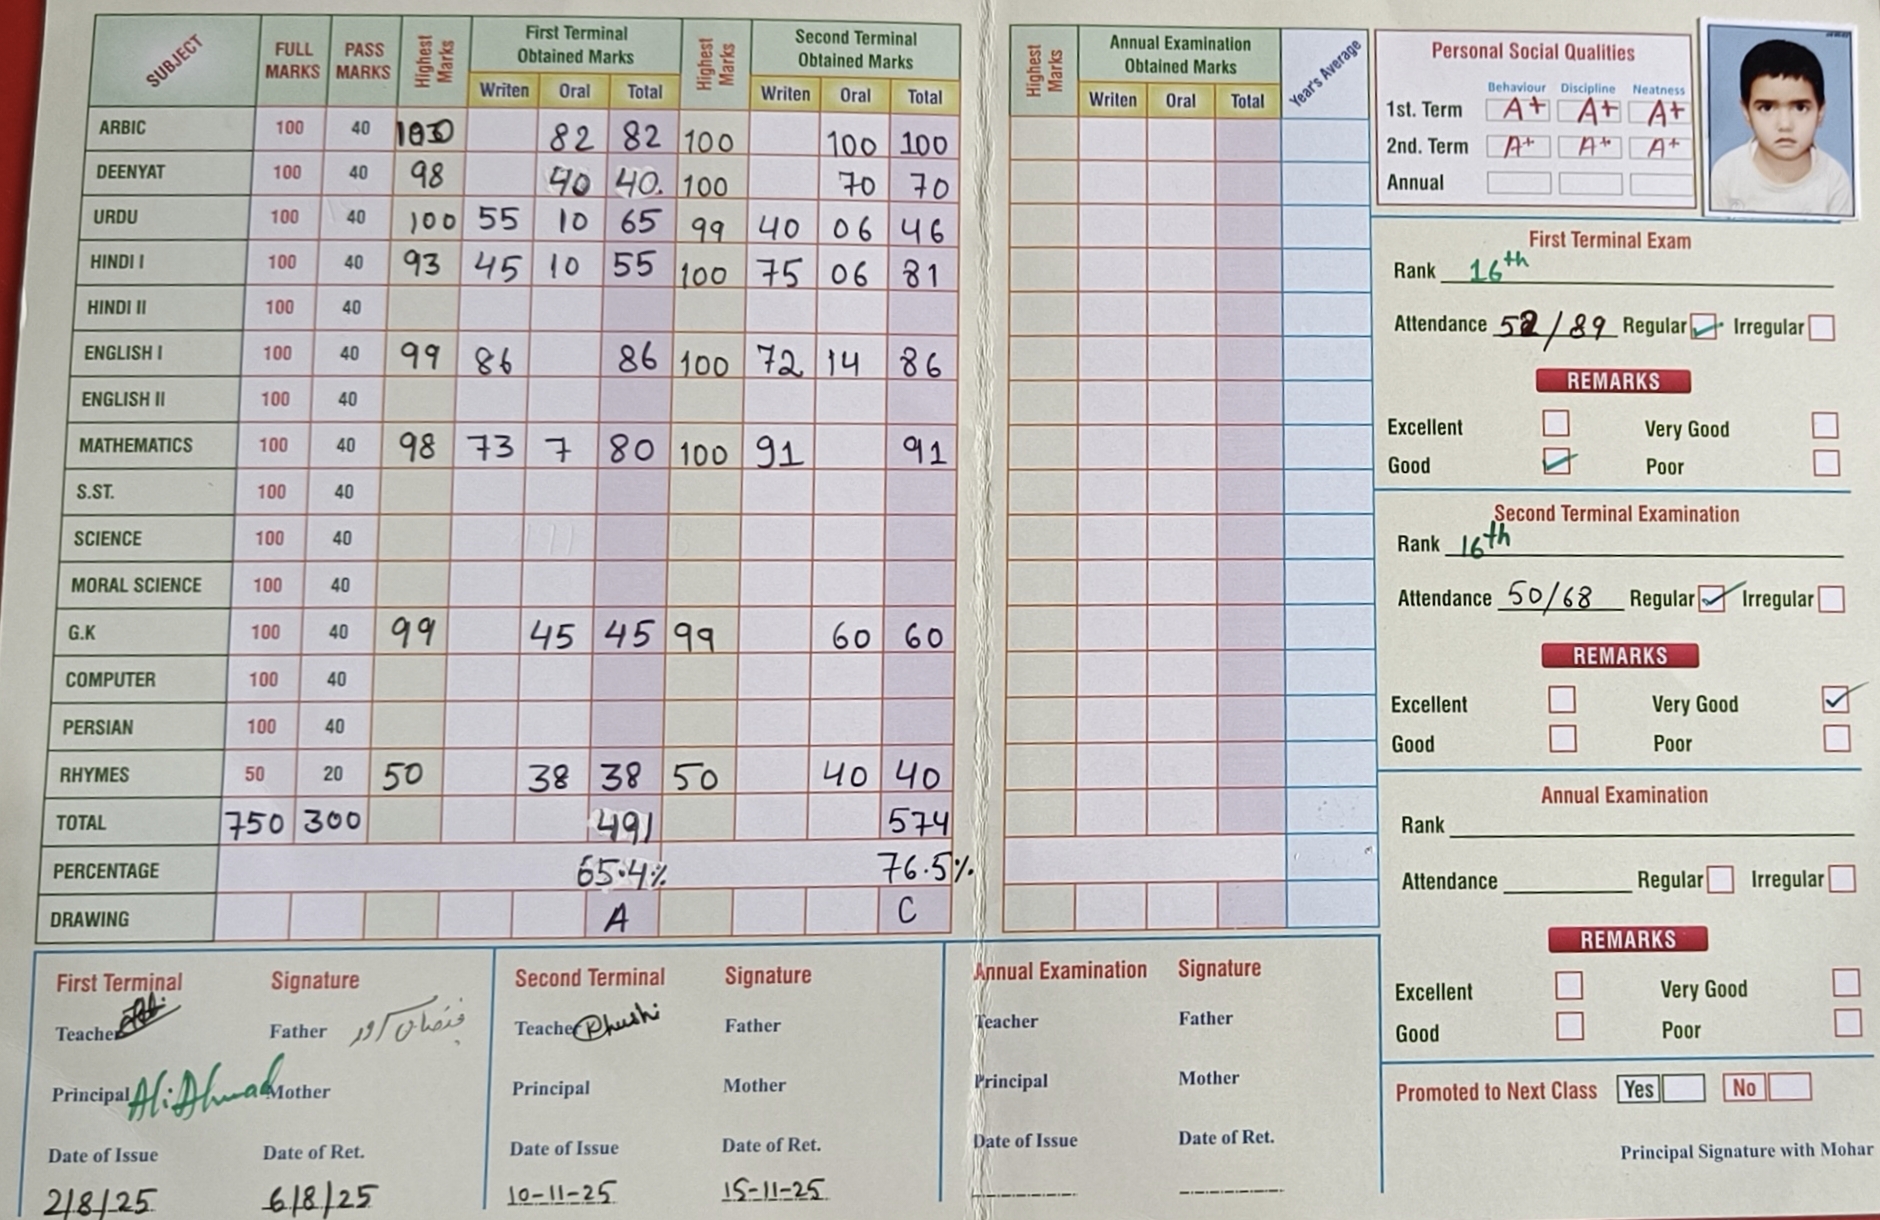 SUBJECT FULL MARKS PASS MARKS Highest Marks First Terminal Obtained Marks Highest Marks Second Terminal Obtained Marks Highest Marks Annual Examination Obtained Marks Year's Average
Writen Oral Total Writen Oral Total Writen Oral Total
ARBIC 100 40 100 82 82 100 100 100
DEENYAT 100 40 98 40 40. 100 70 70
URDU 100 40 100 55 10 65 99 40 06 46
HINDI I 100 40 93 45 10 55 100 75 06 81
HINDI II 100 40
ENGLISH I 100 40 99 86 86 100 72 14 86
ENGLISH II 100 40
MATHEMATICS 100 40 98 73 7 80 100 91 91
S.ST. 100 40
SCIENCE 100 40
MORAL SCIENCE 100 40
G.K 100 40 99 45 45 99 60 60
COMPUTER 100 40
PERSIAN 100 40
RHYMES 50 20 50 38 38 50 40 40
TOTAL 750 300 491 574
PERCENTAGE 65.4% 76.5%
DRAWING A C
Personal Social Qualities
Behaviour Discipline Neatness
1st. Term A+ A+ A+
2nd. Term A+ A+ A+
Annual
First Terminal Exam
Rank 16th
Attendance 52/89 Regular Irregular
REMARKS
Excellent Very Good
Good Poor
Second Terminal Examination
Rank 16th
Attendance 50/68 Regular Irregular
REMARKS
Excellent Very Good
Good Poor
Annual Examination
Rank
Attendance Regular Irregular
REMARKS
Excellent Very Good
Good Poor
Promoted to Next Class Yes No
Principal Signature with Mohar
First Terminal Signature
Teacher Father
Principal Ali Ahmad Mother
Date of Issue Date of Ret.
2/8/25 6/8/25
Second Terminal Signature
Teacher Khushi Father
Principal Mother
Date of Issue Date of Ret.
10-11-25 15-11-25
Annual Examination Signature
Teacher Father
Principal Mother
Date of Issue Date of Ret.